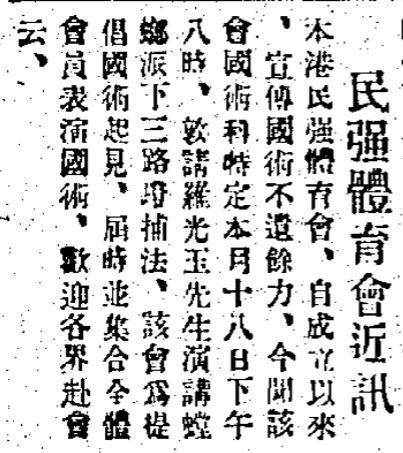 民强體育會近訊
本港民强體育會、自成立以來
、宣傳國術不遺餘力、今聞該
會國術科特定本月十八日下午
八時、敦請羅光玉先生演講螳
螂派下三路捕法、該會爲提
倡國術起見、屆時並集合全體
會員表演國術、歡迎各界赴會
云、